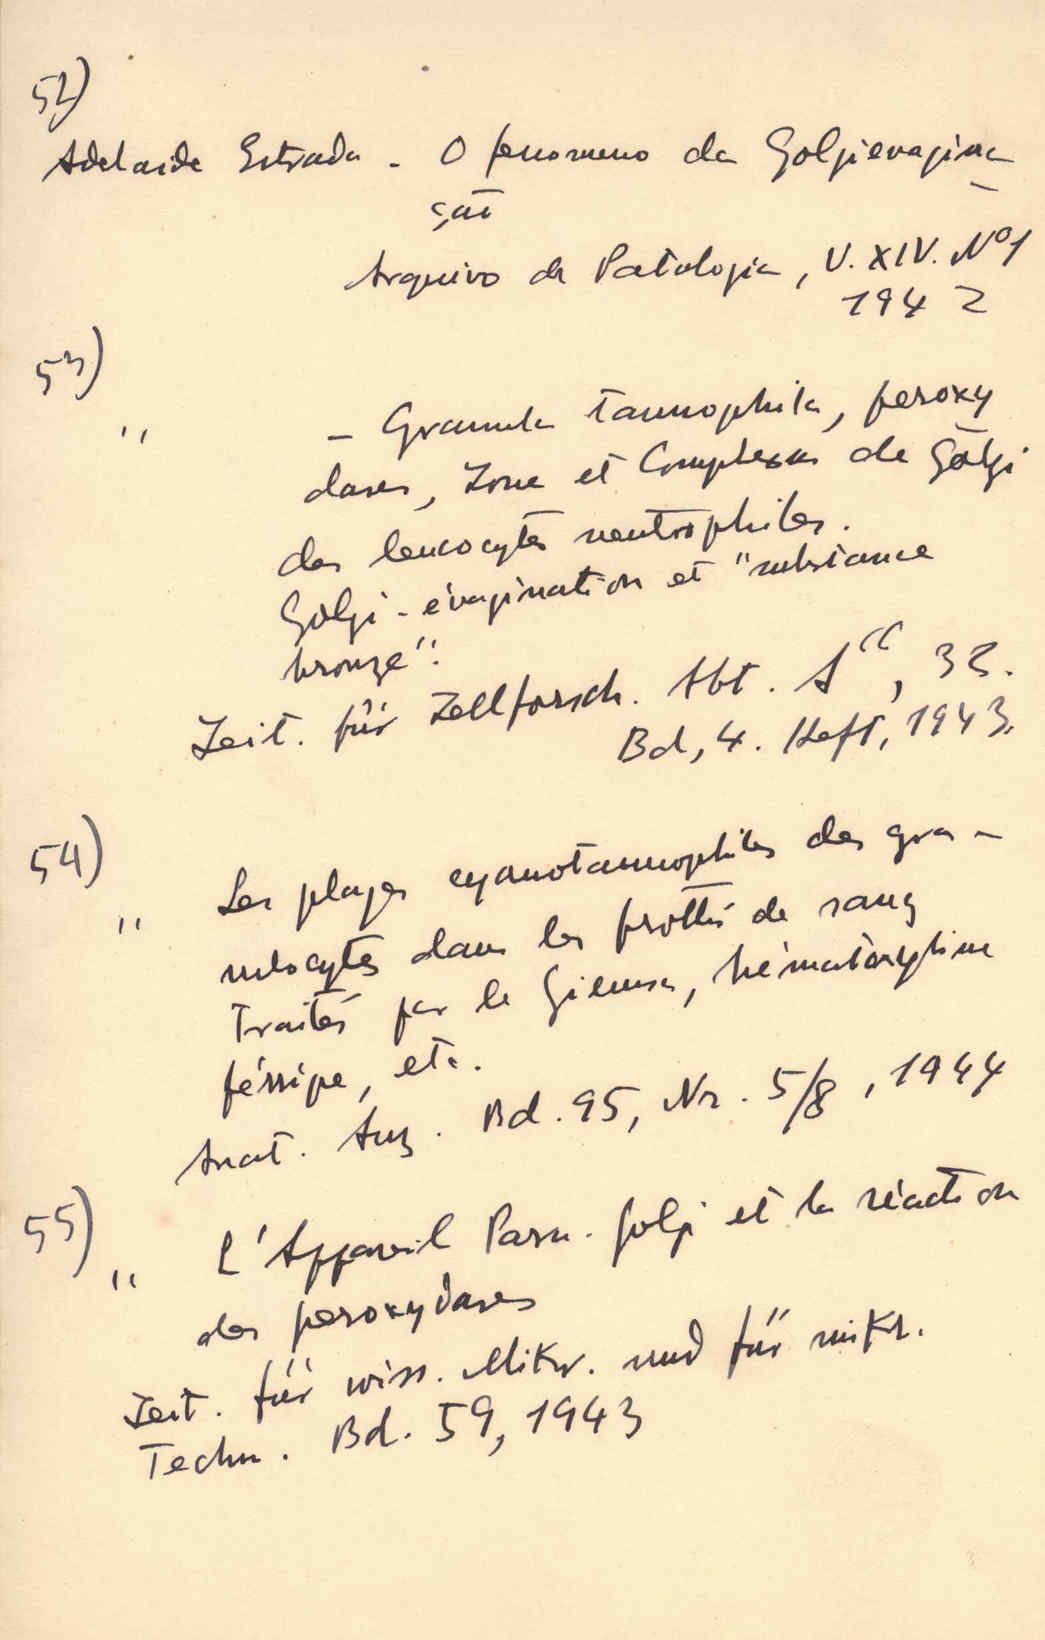 52)
Adelaide Estrada - O fenomeno da Golgievagina-
ção
Arquivo de Patologia, V. XIV. Nº1
1942
53)
" - Granula tannophila, peroxy
dases, Zone et Complexus de Golgi
des leucocytes neutrophiles.
Golgi-évagination et "substance
bronze".
Zeit. für Zellforsch. Abt. A", 32.
Bd, 4. Heft, 1943.
54)
" Les plages cyanotannophiles des gra-
nulocytes dans les frottis de sang
traités par le Giemsa, hématoxyline
ferrique, etc.
Anat. Anz. Bd. 95, Nr. 5/8, 1944
55)
" L'Appareil Para. Golgi et la réaction
des peroxydases
Zeit. für wiss. Mikr. und für mikr.
Techn. Bd. 59, 1943